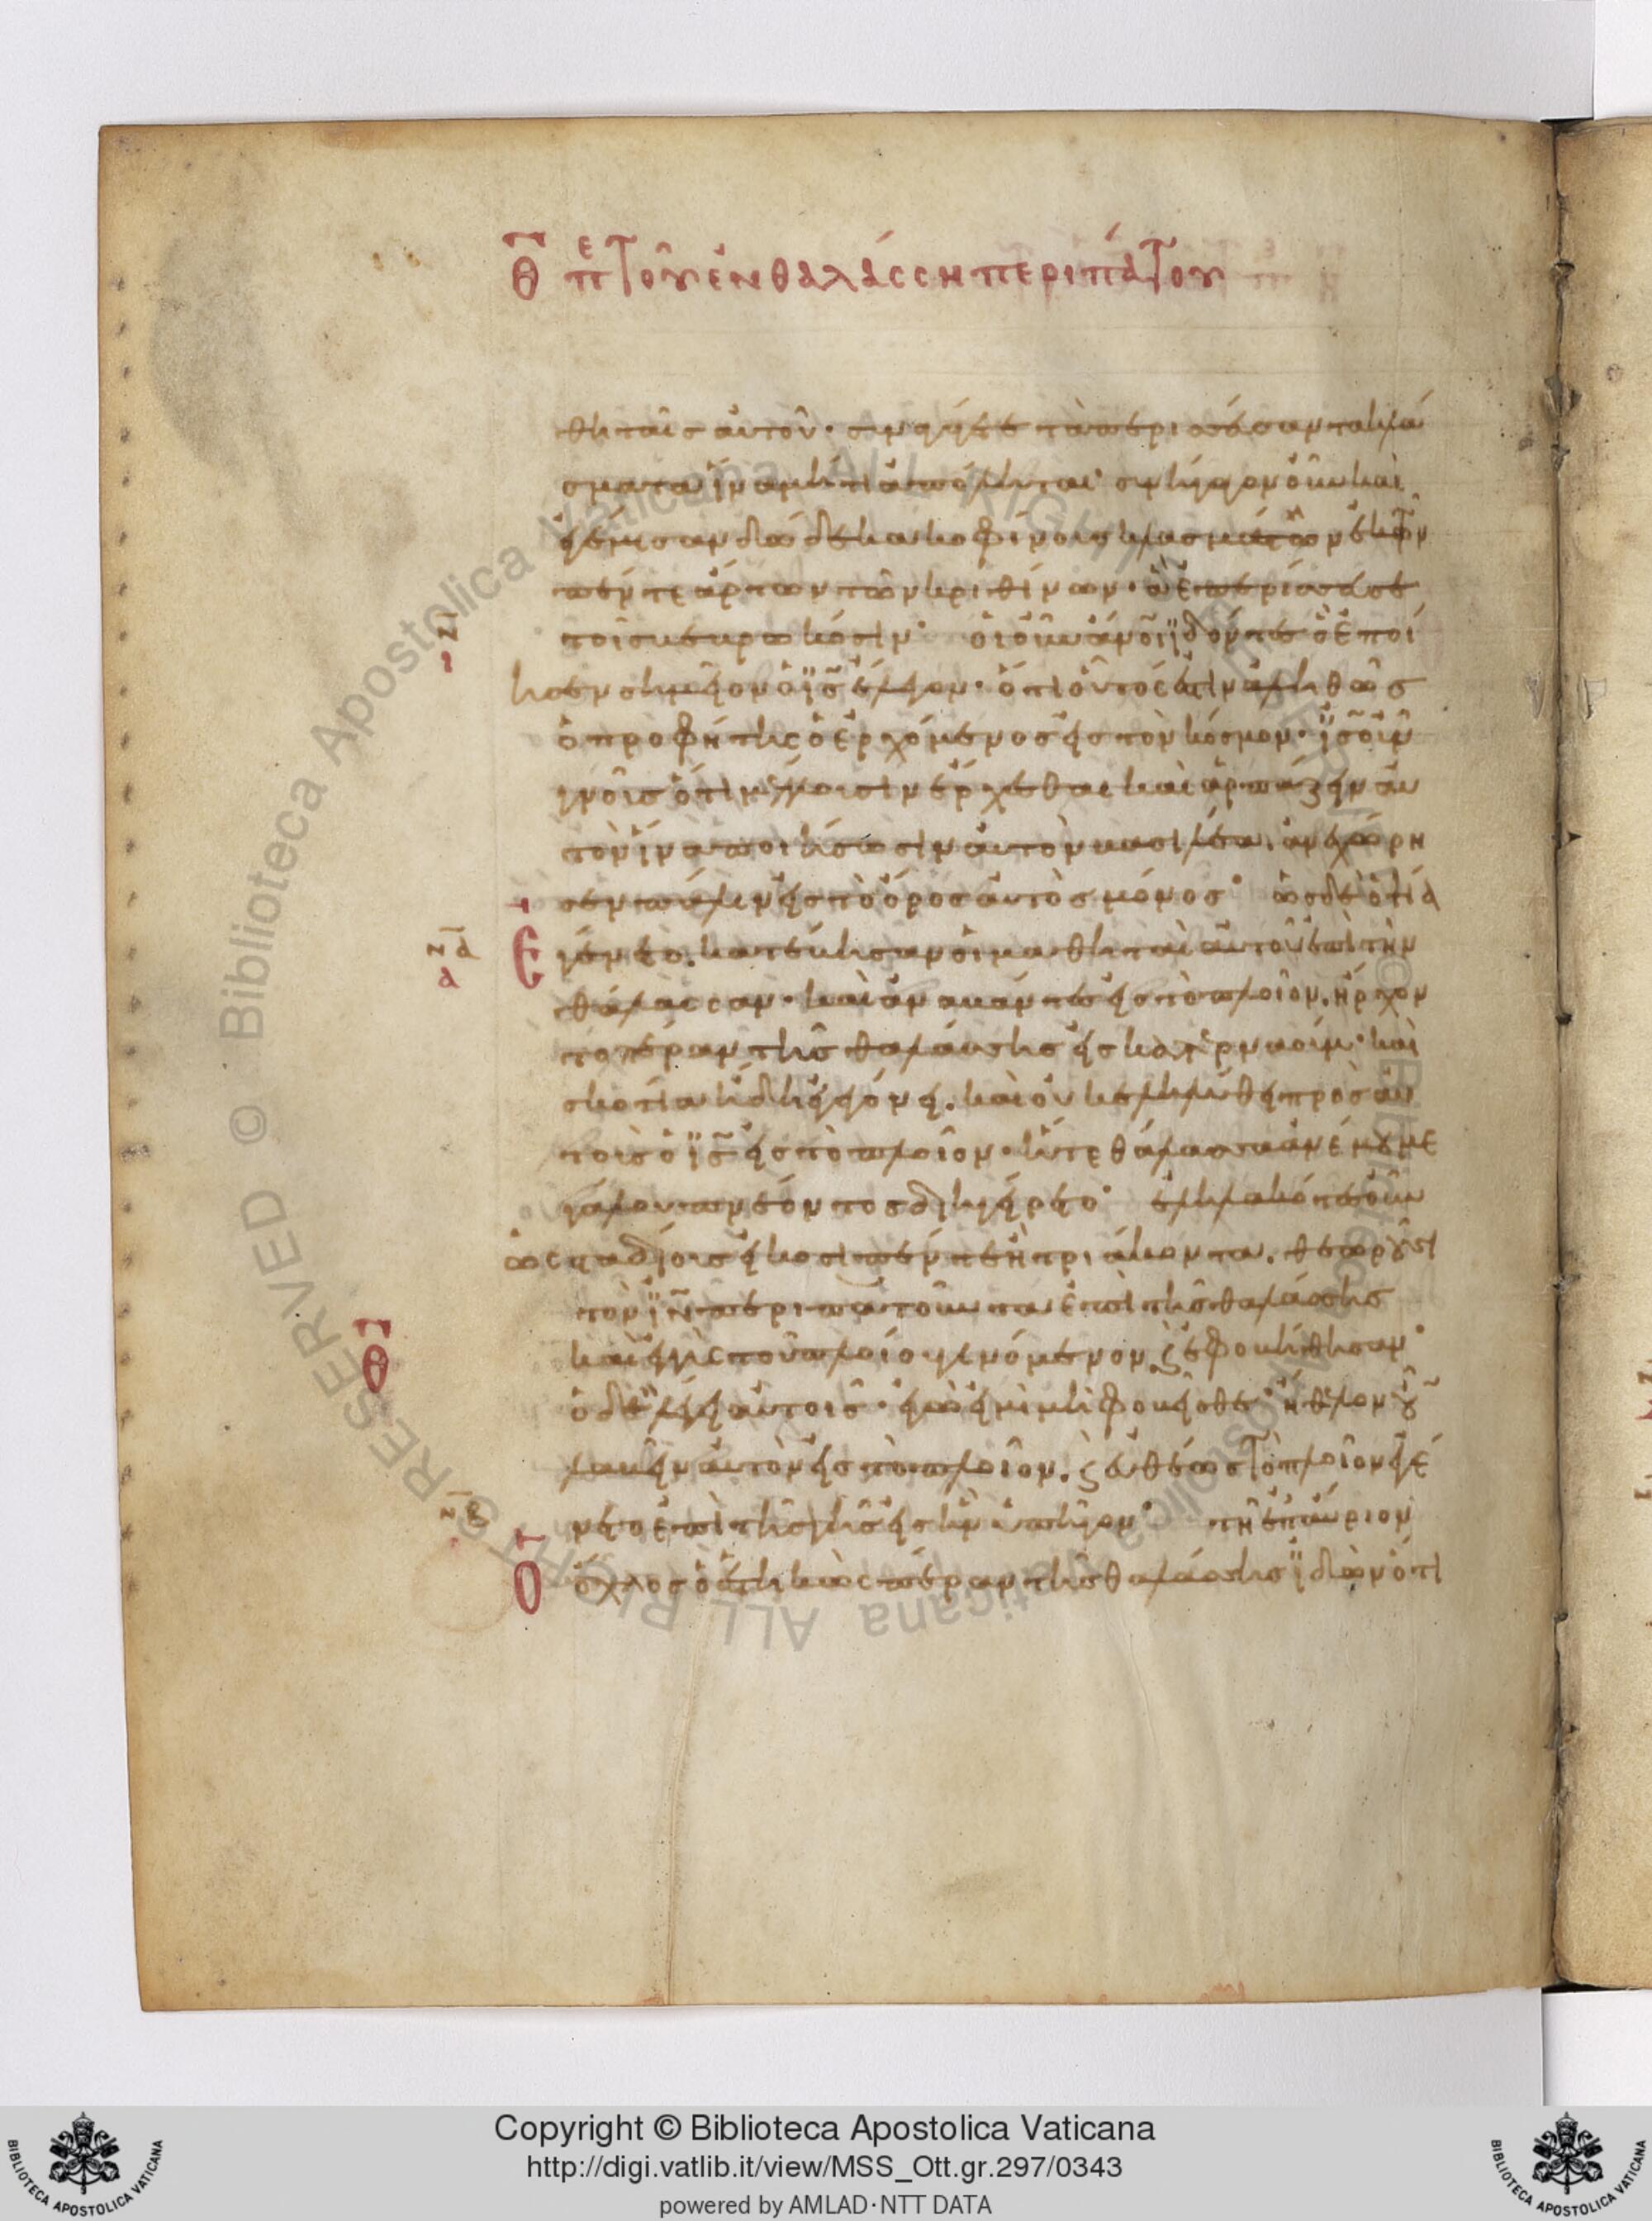 θ̄ πε τοῦ ἐν θαλάσσῃ περιπάτου
θηταῖς αὐτοῦ· συναγάγετε τὰ περισσεύσαντα κλά
σματα ἵνα μή τι ἀπόληται· συνήγαγον οὖν καὶ
ἐγέμισαν δώδεκα κοφίνους κλασμάτων ἐκ τῶν
πέντε ἄρτων τῶν κριθίνων· ἃ ἐπερίσσευσε
τοῖς βεβρωκόσιν· οἱ οὖν ἄνοι ἰδόντες ὃ ἐποί
ησεν σημεῖον ὁ ις ἔλεγον· ὅτι οὗτός ἐστιν ἀληθῶς
ὁ προφήτης ὁ ἐρχόμενος εἰς τὸν κόσμον· ις οὖν
γνοὺς ὅτι μέλλουσιν ἔρχεσθαι καὶ ἁρπάζειν αὐ
τὸν ἵνα ποιήσωσιν αὐτὸν βασιλέα. ἀνεχώρη
σεν πάλιν εἰς τὸ ὄρος αὐτὸς μόνος· ὡς δὲ ὀψία
ἐγένετο. κατέβησαν οἱ μαθηταὶ αὐτοῦ ἐπὶ τὴν
θάλασσαν· καὶ ἐμβάντες εἰς τὸ πλοῖον. ἤρχον
το πέραν τῆς θαλάσσης εἰς καπερναούμ· καὶ
σκοτία ἤδη ἐγεγόνει. καὶ οὐκ ἐληλύθει πρὸς αὐ
τοὺς ὁ ις εἰς τὸ πλοῖον· ἥ τε θάλασσα ἀνέμου με
γάλου πνέοντος διηγείρετο· ἐληλακότες οὖν
ὡς σταδίους εἴκοσι πέντε ἢ τριάκοντα. θεωροῦσι
τὸν ιν περιπατοῦντα ἐπὶ τῆς θαλάσσης
καὶ ἐγγὺς τοῦ πλοίου γενόμενον, ϗ ἐφοβήθησαν·
ὁ δὲ λέγει αὐτοῖς· ἐγώ εἰμι μὴ φοβεῖσθε· ἤθελον οὖν
λαβεῖν αὐτὸν εἰς τὸ πλοῖον. ϗ εὐθέως τὸ πλοῖον ἐγέ
νετο ἐπὶ τῆς γῆς εἰς ἣν ὑπῆγον· τῇ ἐπαύριον
ὁ ὄχλος ὁ ἑστηκὼς πέραν τῆς θαλάσσης ἰδὼν ὅτι
ν̄
ι
ν̄α
δ
θ̄
ν̄β
© Biblioteca Apostolica Vaticana ALL RIGHTS RESERVED
Copyright © Biblioteca Apostolica Vaticana
http://digi.vatlib.it/view/MSS_Ott.gr.297/0343
powered by AMLAD·NTT DATA
BIBLIOTECA APOSTOLICA VATICANA
BIBLIOTECA APOSTOLICA VATICANA